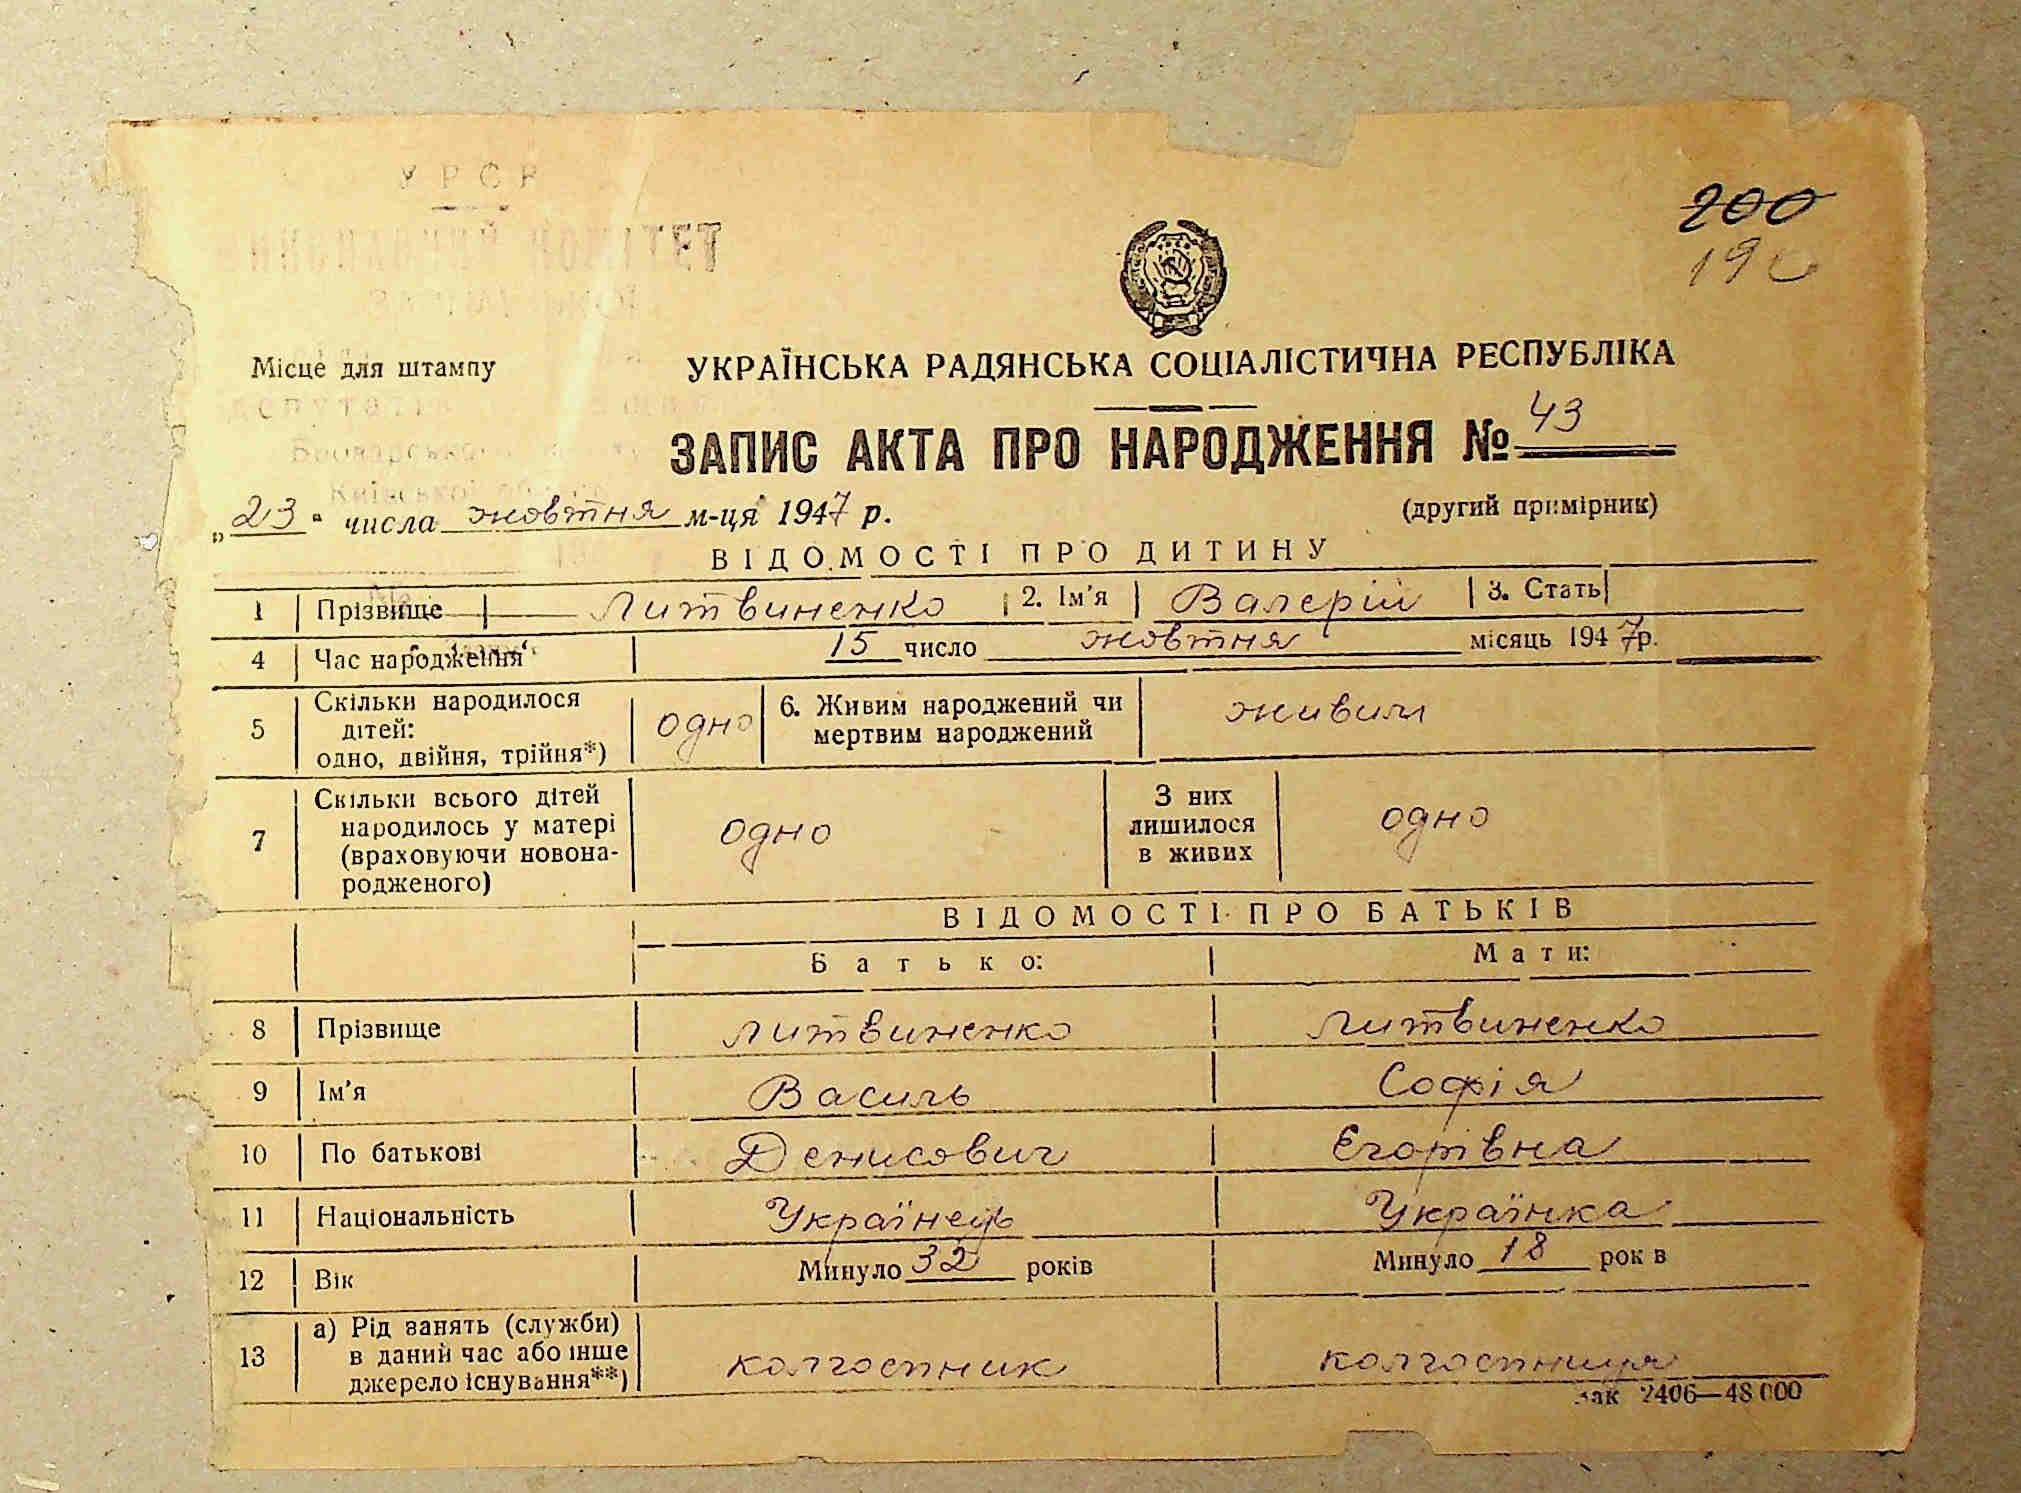 УРСР
КОМІТЕТ
200
Місце для штампу
УКРАЇНСЬКА РАДЯНСЬКА СОЦІАЛІСТИЧНА РЕСПУБЛІКА
ЗАПИС АКТА ПРО НАРОДЖЕННЯ № 43
„23“ числа жовтня м-ця 1947 р.
(другий примірник)
ВІДОМОСТІ ПРО ДИТИНУ
1 Прізвище Литвиненко 2. Ім'я Валерій 3. Стать
4 Час народження 15 число жовтня місяць 1947р.
5 Скільки народилося дітей: одно, двійня, трійня*) одно 6. Живим народжений чи мертвим народжений живим
7 Скільки всього дітей народилось у матері (враховуючи новонародженого) одно З них лишилося в живих одно
ВІДОМОСТІ ПРО БАТЬКІВ
Батько: Мати:
8 Прізвище Литвиненко Литвиненко
9 Ім'я Василь Софія
10 По батькові Денисович Єгорівна
11 Національність Українець Українка
12 Вік Минуло 32 років Минуло 18 рок в
13 а) Рід занять (служби) в даний час або інше джерело існування**) колгоспник колгоспниця
зак 2406—48 000